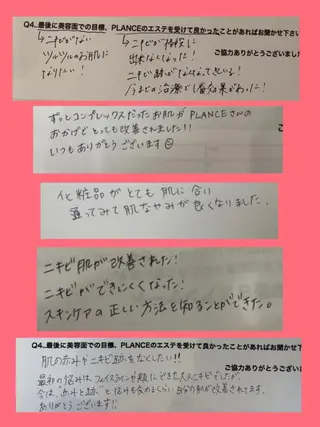 Q4..最後に美容面での目標、PLANCEのエステを受けて良かったことがあればお聞かせ下さい
ご協力ありがとうございました
↳ニキビがない
ツルツルのお肌に
なりたい！
↳ニキビが格段に
出なくなった！
ニキビ跡がなくなってきている！
今までの治療で1番効果があった！
ずっとコンプレックスだったお肌がPLANCEさんの
おかげでとっても改善されました!!
いつもありがとうございます☺
化粧品がとても肌に合い
通ってみて肌なやみが良くなりました。
ニキビ肌が改善された！
ニキビができにくくなった！
スキンケアの正しい方法を知ることができた。
Q4..最後に美容面での目標、PLANCEのエステを受けて良かったことがあればお聞かせ下さい
肌の赤みやニキビ跡をなくしたい!!
ご協力ありがとうございました
最初の悩みは、フェイスラインや頬にできた大人ニキビでしたが、
今は、"赤みと跡"と悩みも変わるくらい自分の肌が改善されてます。
ありがとうございます!!